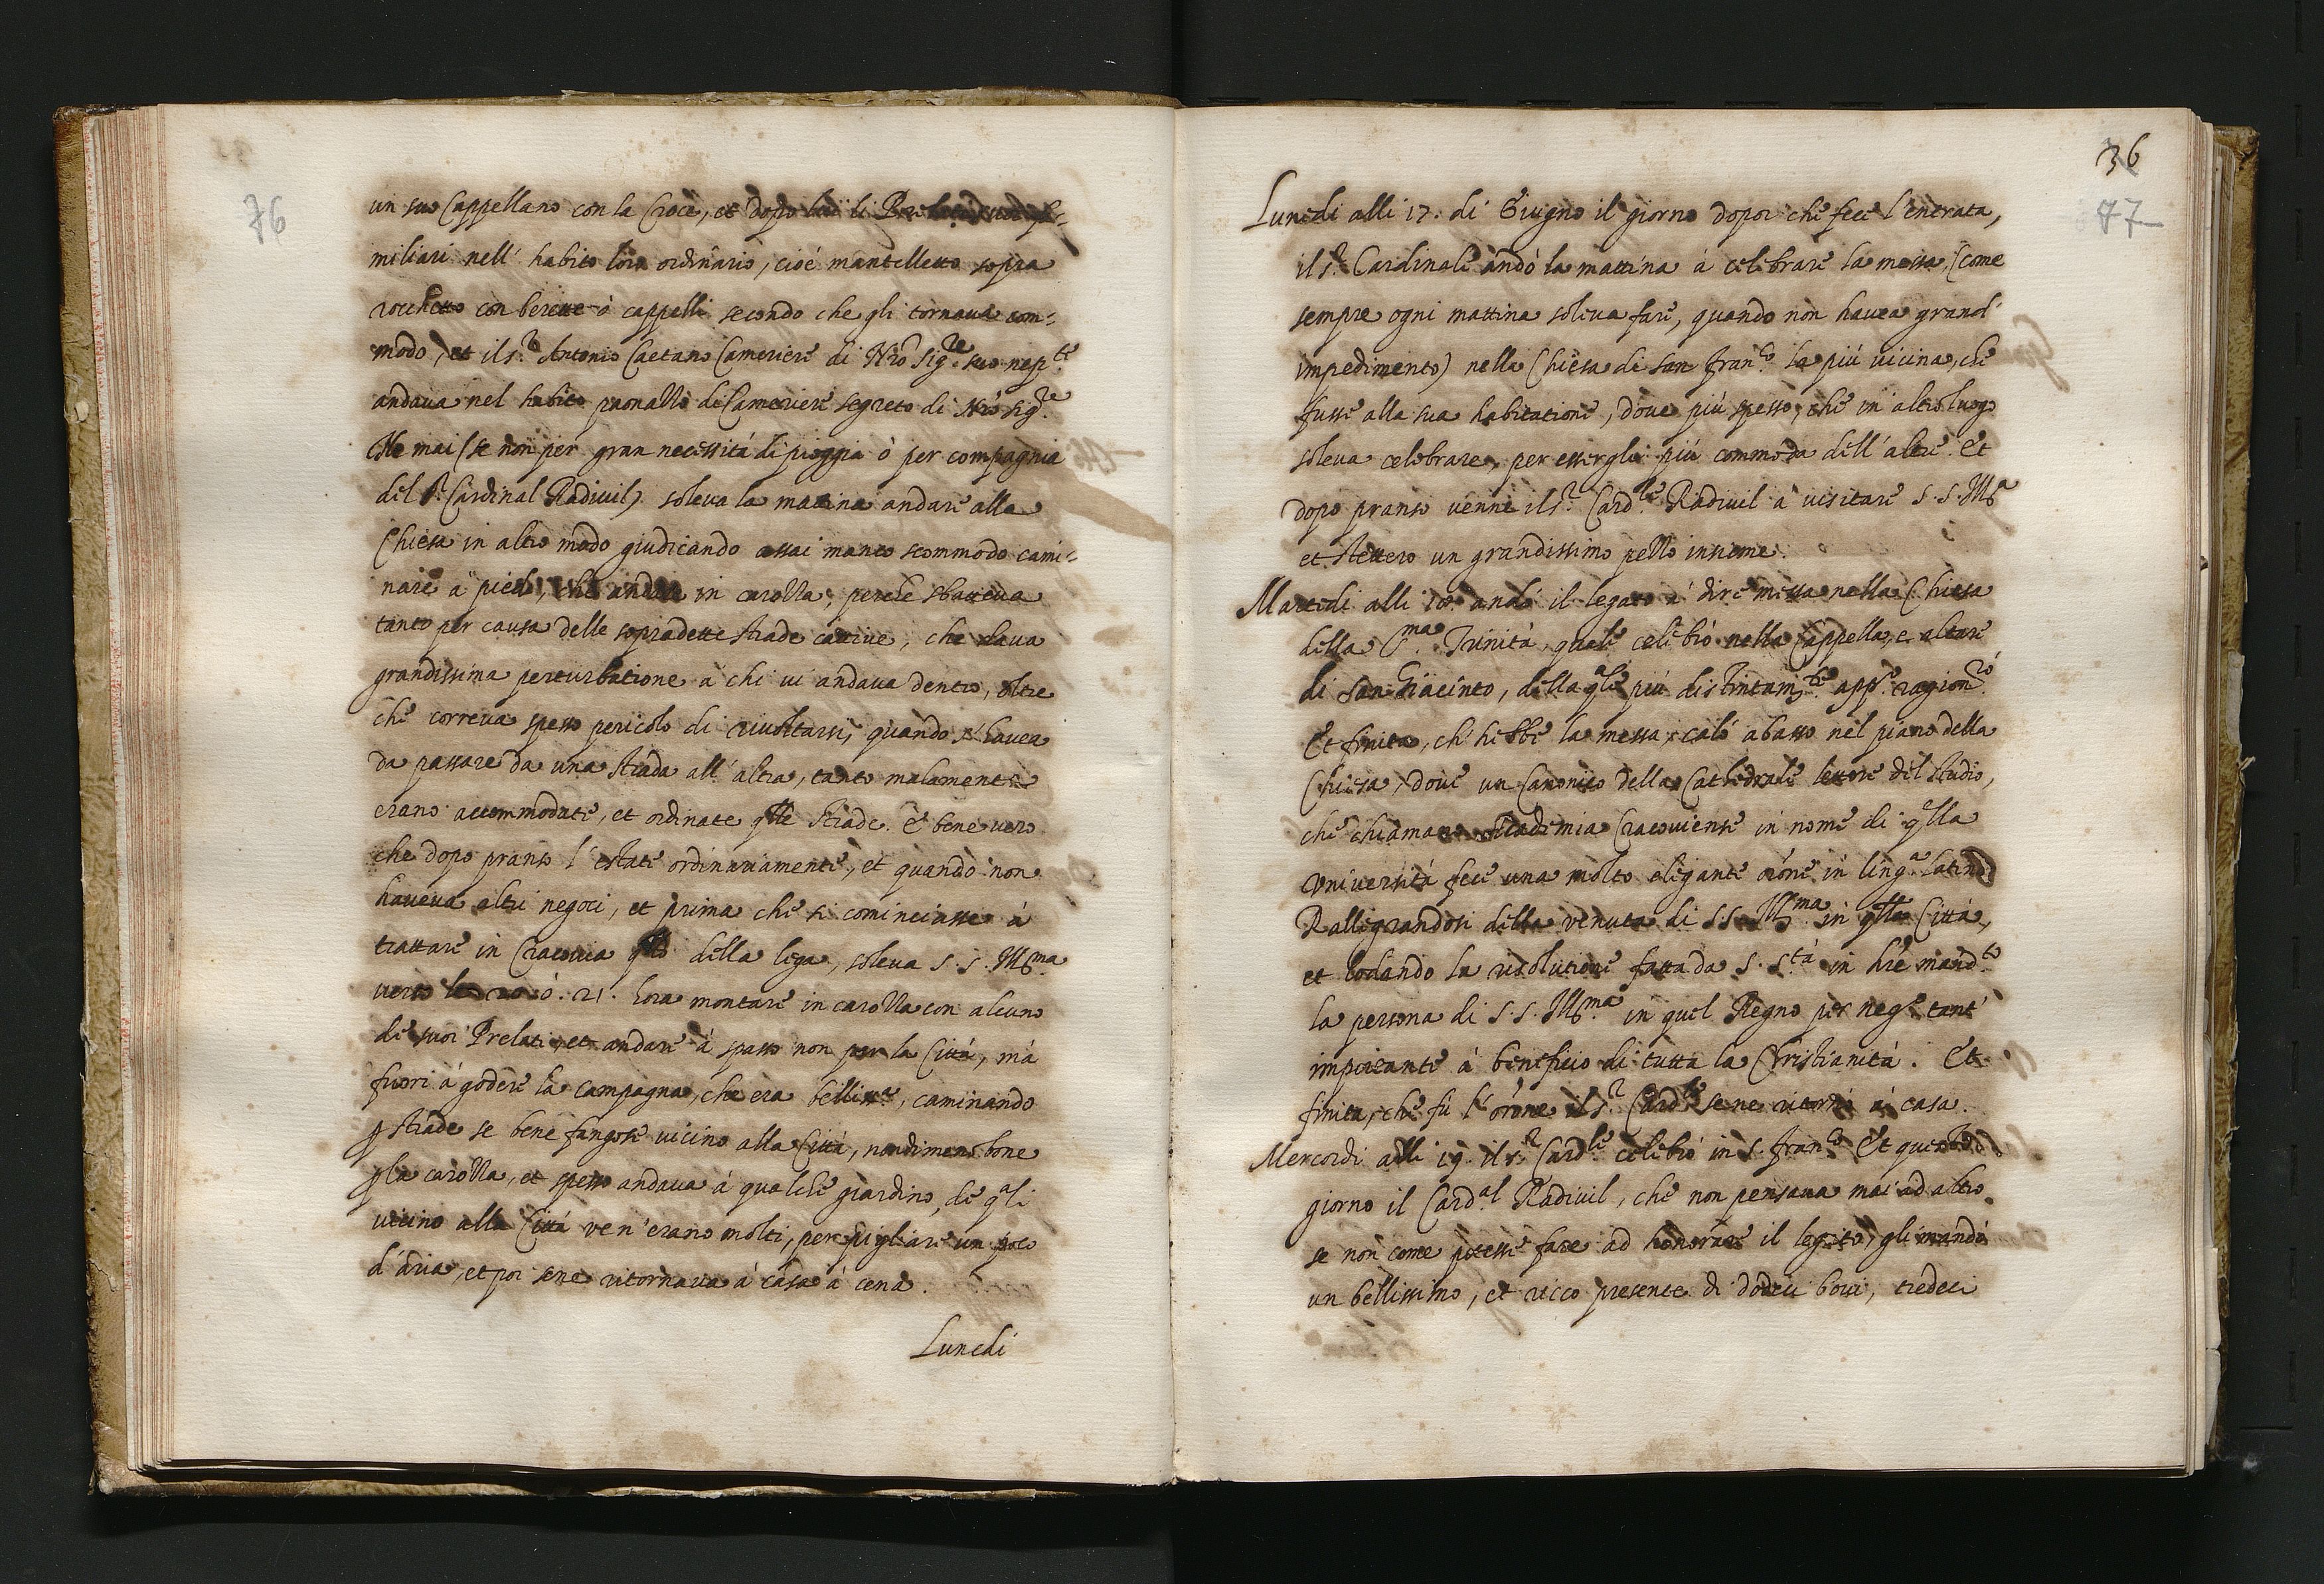 76
un suo Cappellano con la Croce, et dopo lui li Prelati suoi fa-
miliari nell' habito loro ordinario, cioè mantelletto sopra
rocchetto con berette ò cappelli secondo che gli tornava com-
modo, et il s.re Antonio Caetano Cameriere di Nro Sig.re suo nep.te
andava nel habito paonazzo di Cameriere segreto di Nro Sig.re
Ne mai (se non per gran necessità di pioggia ò per compagnia
del S.r Cardinal Radivil) soleva la matina andare alla
Chiesa in altro modo giudicando assai manco scommodo cami-
nare à piedi, che andar in carozza, perche sbatteva
tanto per causa delle sopradette strade cattive, che dava
grandissima perturbatione à chi vi andava dentro, oltre
che correva spesso pericolo di rivoltarsi, quando s' havea
da passare da una strada all' altra, tanto malamente
erano accommodate, et ordinate qlle strade. È bene vero
che dopo pranso l' estate ordinariamente, et quando non
haveva altri negoci, et prima che si cominciasse à
trattare in Cracovia qllo della lega, soleva S. S. Ill.ma
verso le 20 ò. 21. hora montare in carozza con alcuno
de suoi Prelati, et andare à spasso non per la Città, mà
fuori à godere la campagna, che era belliss.a, caminando
p strade se bene fangose vicino alla Città, nondimeno bone
p la carozza, et spesso andava à qualche giardino, de q.li
vicino alla Città ve n' erano molti, per pigliare un poco
d' aria, et poi sene ritornava à casa à cena.
Lunedi
36
77
Lunedi alli 17. di Giugno il giorno dopoi che fece l' entrata,
il S.r Cardinale andò la mattina à celebrare la messa, (come
sempre ogni mattina soleva fare, quando non havea grand'
impedimento) nella Chiesa di San Fran.co la più vicina, che
fusse alla sua habitatione, dove più spesso, che in altro luogo
soleva celebrare, per essergli più commoda dell' altre. Et
dopo pranso venne il S.r Card.le Radivil à visitare S. S. Ill.ma
et stettero un grandissimo pezzo insieme.
Martedi alli 18. andò il legato à dire messa nella Chiesa
della S.ma Trinità, quale celebrò nella Cappella, e altare
di San Giacinto, della q.le più distintam.te app.o ragion.rò
Et finita, ch' hebbe la messa, calò abasso nel piano della
Chiesa, dove un Canonico della Cathedrale lettore del studio,
che chiamano Academia Cracoviense in nome di q.lla
Università fece una molto elegante orône in ling.a latina
Rallegrandosi della venuta di S. S. Ill.ma in qlla Città,
et lodando la risolutione fatta da S. S.tà in hre mand.to
la persona di S. S. Ill.ma in quel Regno per neg.o tant'
importante à beneficio di tutta la Christianità. Et
finita, che fù l' orône il S.r Card.le se ne ritornò à casa.
Mercordi alli 19. il s.r Card.le celebrò in S. Fran.co Et questo
giorno il Card.al Radivil, che non pensava mai ad altro
se non come potesse fare ad honorare il legato, gli mandò
un bellissimo, et ricco presente di dodeci bovi, tredeci